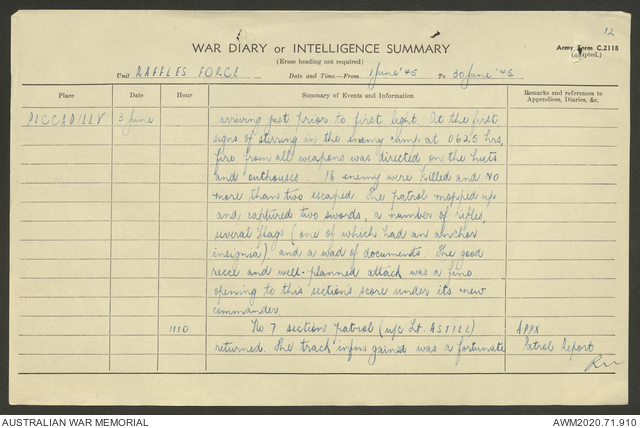 12
WAR DIARY or INTELLIGENCE SUMMARY
(Erase heading not required)
Army Form C.2118
(adapted.)
Unit RAFFLES FORCE Date and Time.—From 1 June '45 To 30 June '45
Place Date Hour Summary of Events and Information Remarks and references to Appendices, Diaries, &c.
PICCADILLY 3 June arriving just prior to first light. At the first
signs of stirring in the enemy camp at 0625 hrs,
fire from all weapons was directed on the huts
and outhouses. 18 enemy were killed and NO
more than two escaped. The patrol mopped up
and captured two swords, a number of rifles,
several flags (one of which had an anchor
insignia) and a wad of documents. The good
recce and well-planned attack was a fine
opening to this section's score under its new
commander.
1110 No 7 section patrol (u/c Lt. ASTILL) APPX
returned. The track infm gained was a fortunate Patrol Report
AUSTRALIAN WAR MEMORIAL
AWM2020.71.910